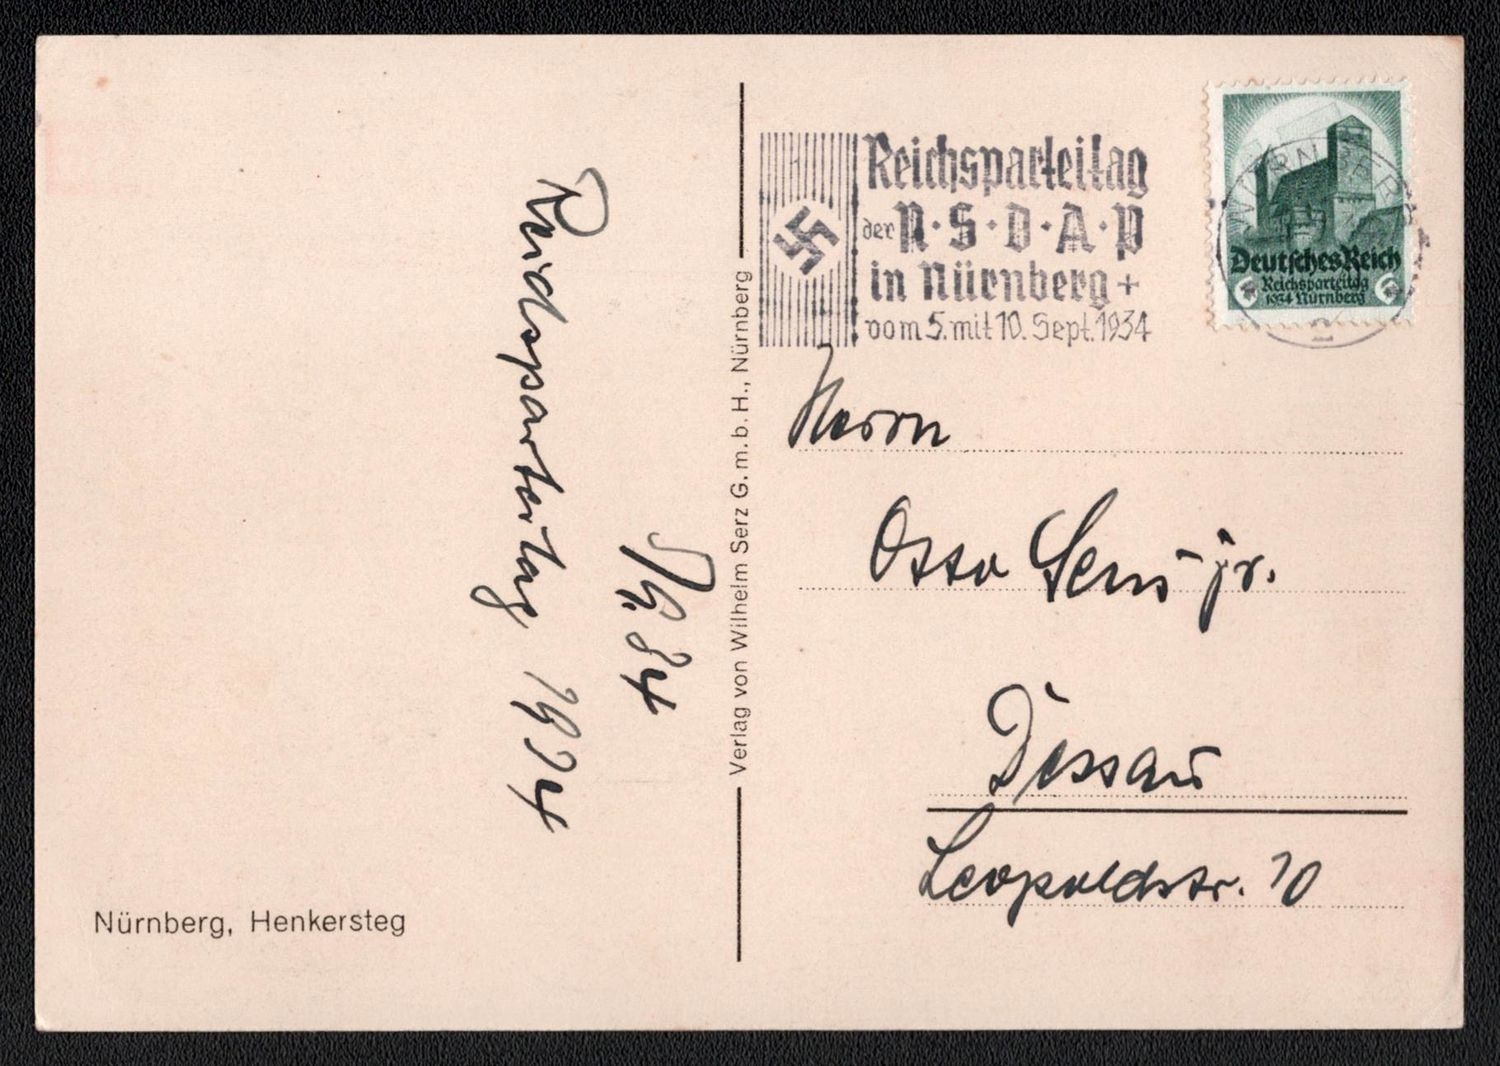 Reichsparteitag
der N·S·D·A·P
in Nürnberg +
vom 5. mit 10. Sept. 1934
NÜRNBERG
2
Deutsches Reich
6 Reichsparteitag 6
1934 Nürnberg
Herrn
Otto Sens jr.
Dessau
Leopoldstr. 10
5/9.34
Reichsparteitag 1934
Verlag von Wilhelm Serz G.m.b.H., Nürnberg
Nürnberg, Henkersteg